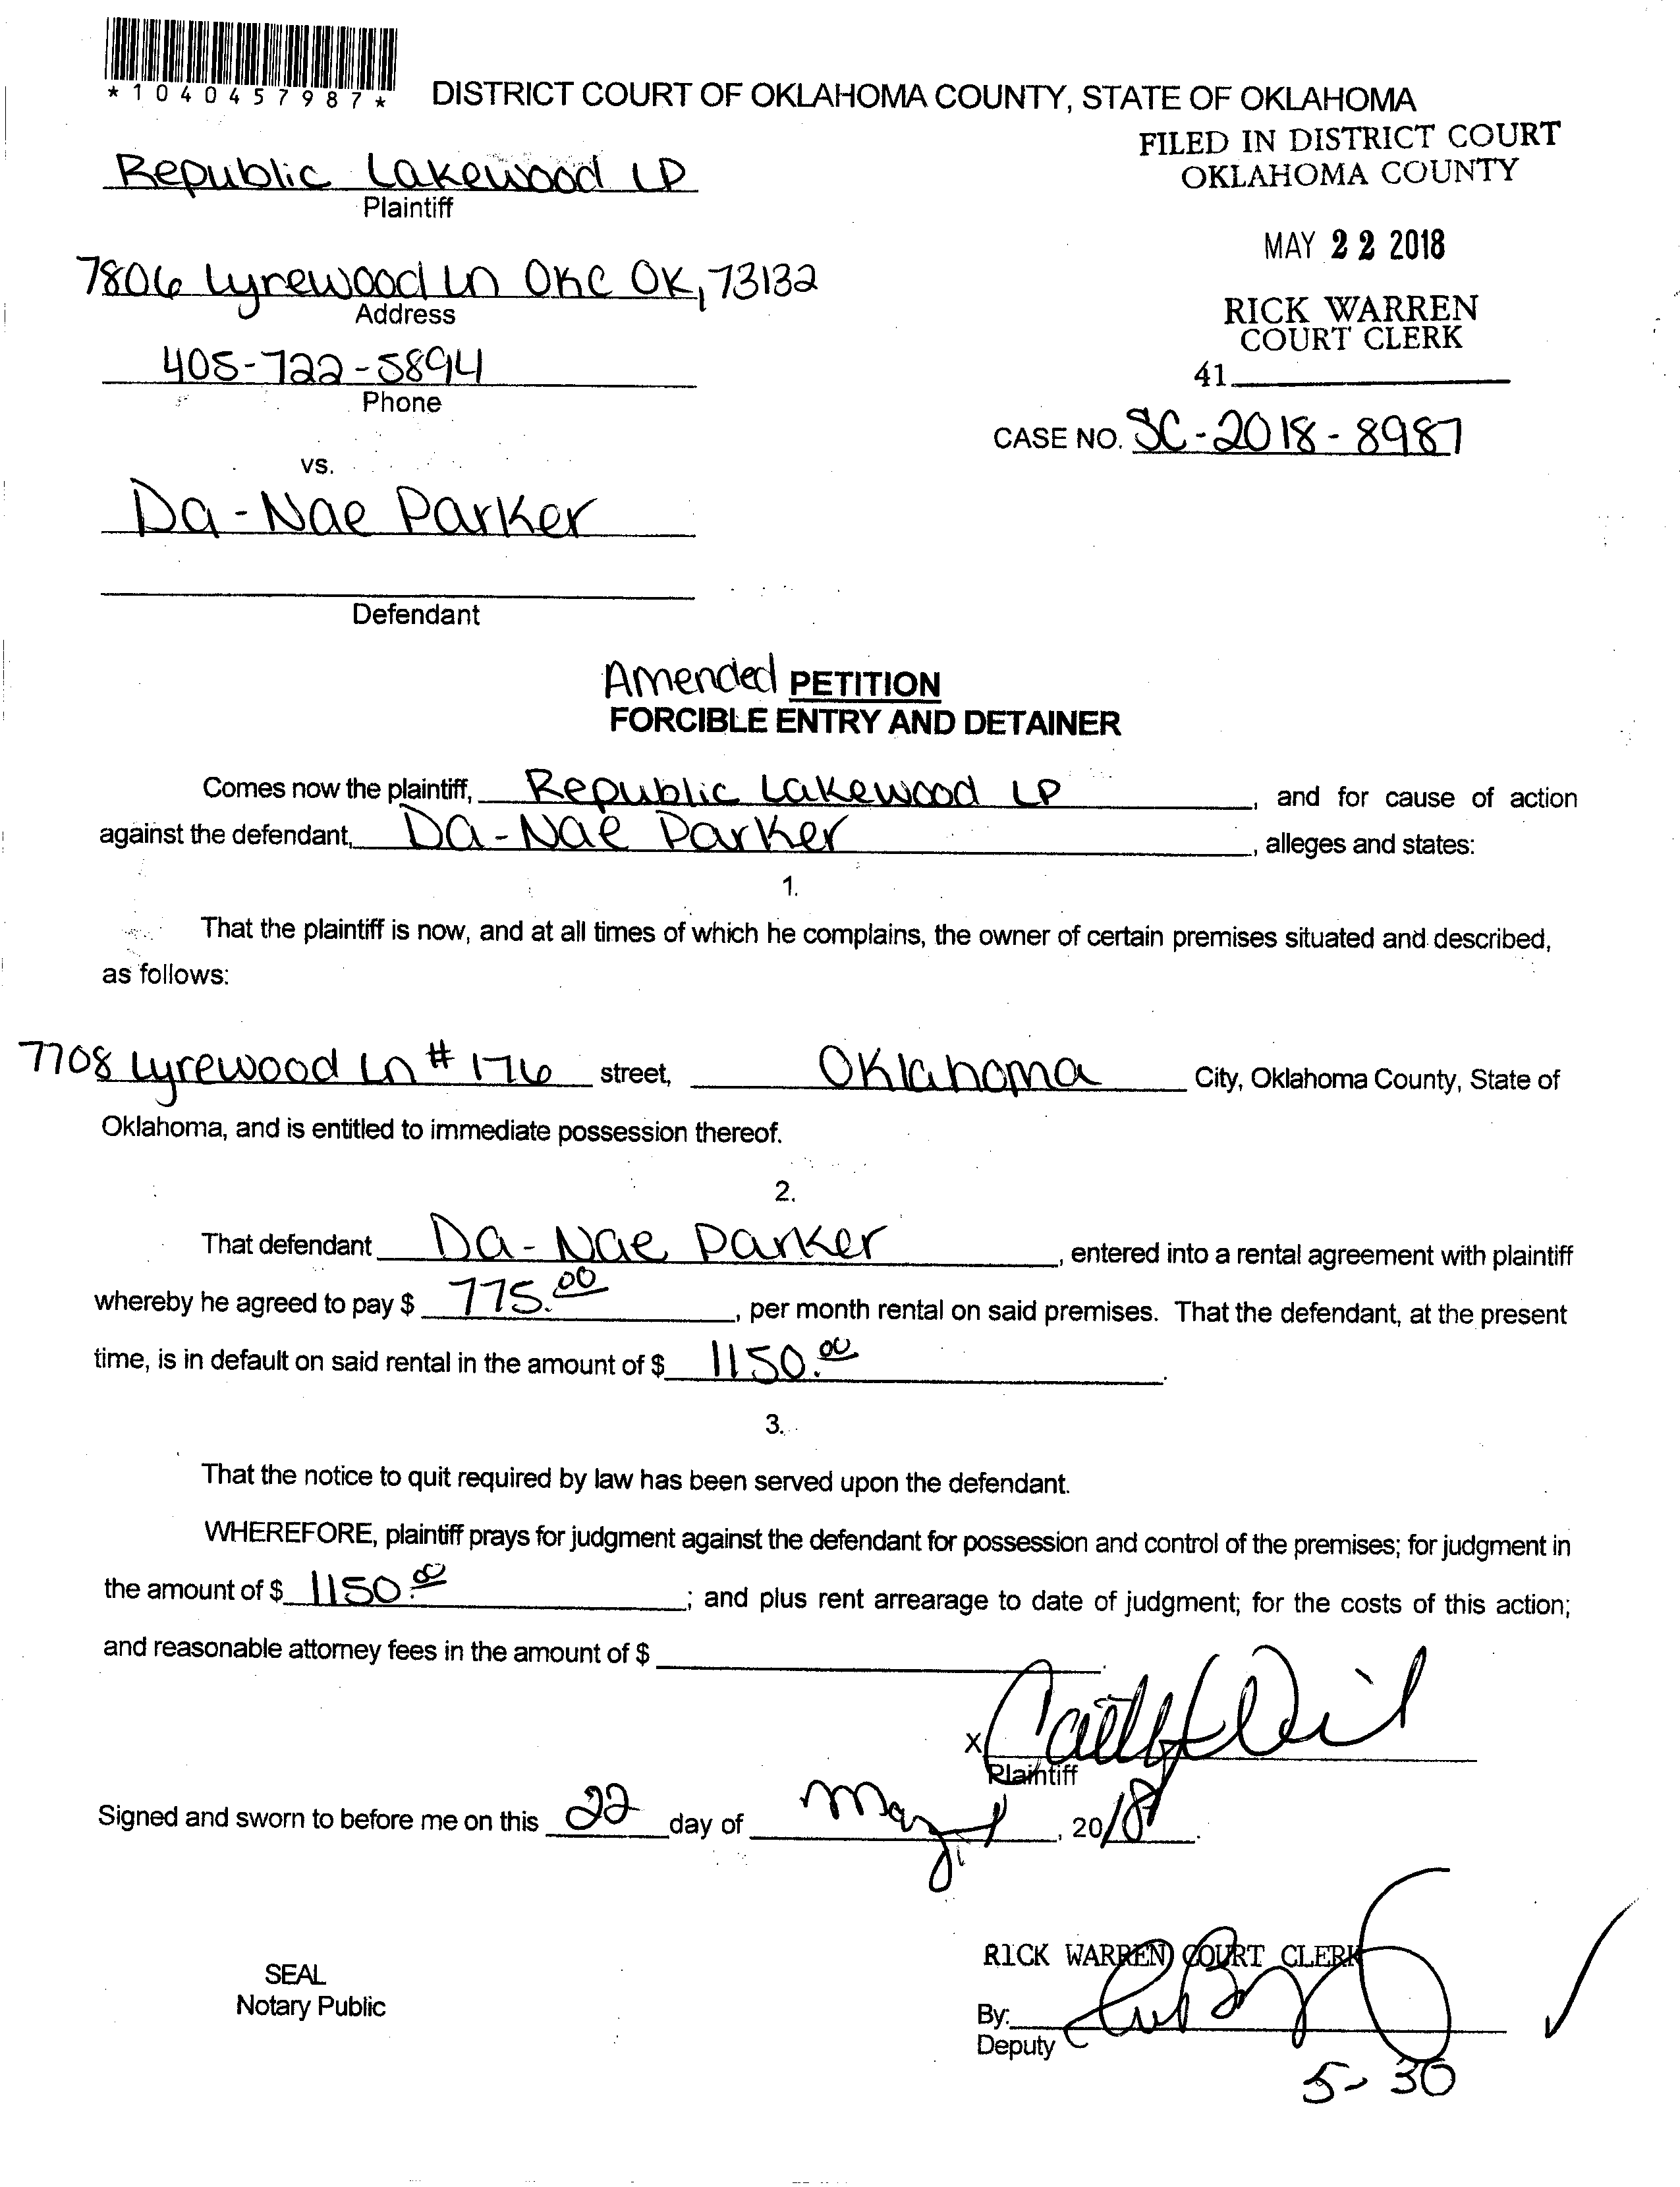 *1040457987*
DISTRICT COURT OF OKLAHOMA COUNTY, STATE OF OKLAHOMA
FILED IN DISTRICT COURT
OKLAHOMA COUNTY
Republic Lakewood LP
Plaintiff
MAY 22 2018
7806 Lyrewood Ln OKC OK, 73132
Address
RICK WARREN
COURT CLERK
405-722-5894
Phone
41
CASE NO. SC-2018-8987
vs.
Da-Nae Parker
Defendant
Amended PETITION
FORCIBLE ENTRY AND DETAINER
Comes now the plaintiff, Republic Lakewood LP, and for cause of action
against the defendant, Da-Nae Parker, alleges and states:
1.
That the plaintiff is now, and at all times of which he complains, the owner of certain premises situated and described,
as follows:
7708 Lyrewood Ln # 176 street, Oklahoma City, Oklahoma County, State of
Oklahoma, and is entitled to immediate possession thereof.
2.
That defendant Da-Nae Parker, entered into a rental agreement with plaintiff
whereby he agreed to pay $ 775.00, per month rental on said premises. That the defendant, at the present
time, is in default on said rental in the amount of $ 1150.00.
3.
That the notice to quit required by law has been served upon the defendant.
WHEREFORE, plaintiff prays for judgment against the defendant for possession and control of the premises; for judgment in
the amount of $ 1150.00; and plus rent arrearage to date of judgment; for the costs of this action;
and reasonable attorney fees in the amount of $
X
Plaintiff
Signed and sworn to before me on this 22 day of May, 2018.
RICK WARREN COURT CLERK
SEAL
Notary Public
By:
Deputy
5-30